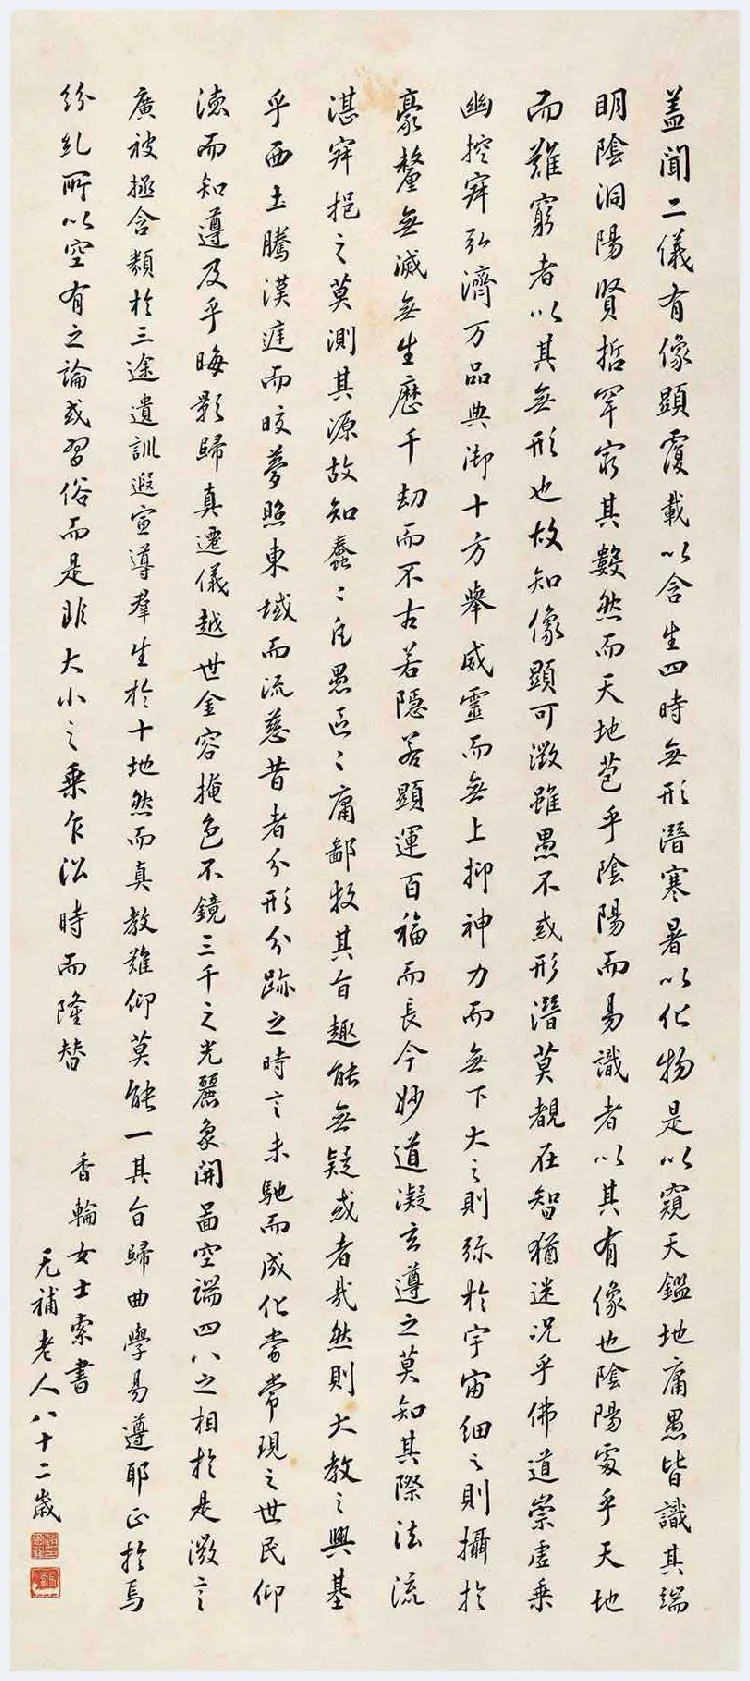 盖聞二儀有像顯覆載以含生四時無形潛寒暑以化物是以窺天鑑地庸愚皆識其端
明陰洞陽賢哲罕窮其數然而天地苞乎陰陽而易識者以其有像也陰陽處乎天地
而難窮者以其無形也故知像顯可徵雖愚不惑形潛莫覩在智猶迷況乎佛道崇虛乗
幽控寂弘濟万品典御十方舉威靈而無上抑神力而無下大之則弥於宇宙細之則攝於
豪釐無滅無生歷千劫而不古若隱若顯運百福而長今妙道凝玄遵之莫知其際法流
湛寂挹之莫測其源故知蠢〻凡愚區〻庸鄙投其旨趣能無疑或者哉然則大教之興基
乎西土騰漢庭而皎夢照東域而流慈昔者分形分跡之時言未馳而成化當常現之世民仰
德而知遵及乎晦影歸真遷儀越世金容掩色不鏡三千之光麗象開啚空端四八之相於是微言
廣被拯含類於三途遺訓遐宣導羣生於十地然而真教難仰莫能一其旨歸曲學易遵耶正於焉
紛糺所以空有之論或習俗而是非大小之乗乍沿時而隆替
香輪女士索書
无補老人八十二歲